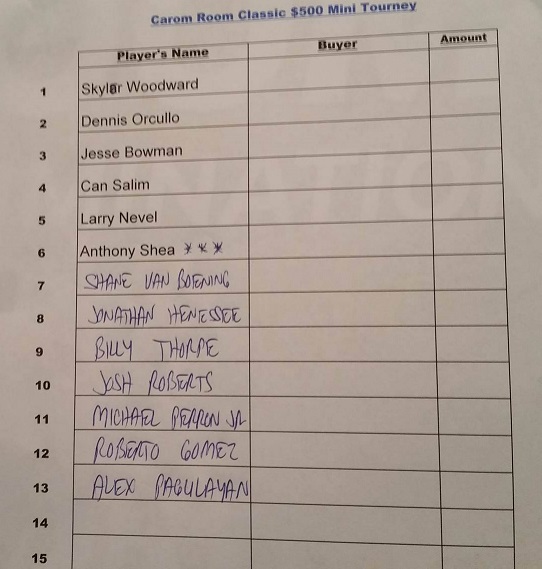 Carom Room Classic $500 Mini Tourney
Player's Name Buyer Amount
1 Skylar Woodward
2 Dennis Orcullo
3 Jesse Bowman
4 Can Salim
5 Larry Nevel
6 Anthony Shea ***
7 SHANE VAN BOENING
8 JONATHAN HENESSEE
9 BILLY THORPE
10 JOSH ROBERTS
11 MICHAEL PERRON JR
12 ROBERTO GOMEZ
13 ALEX PAGULAYAN
14
15